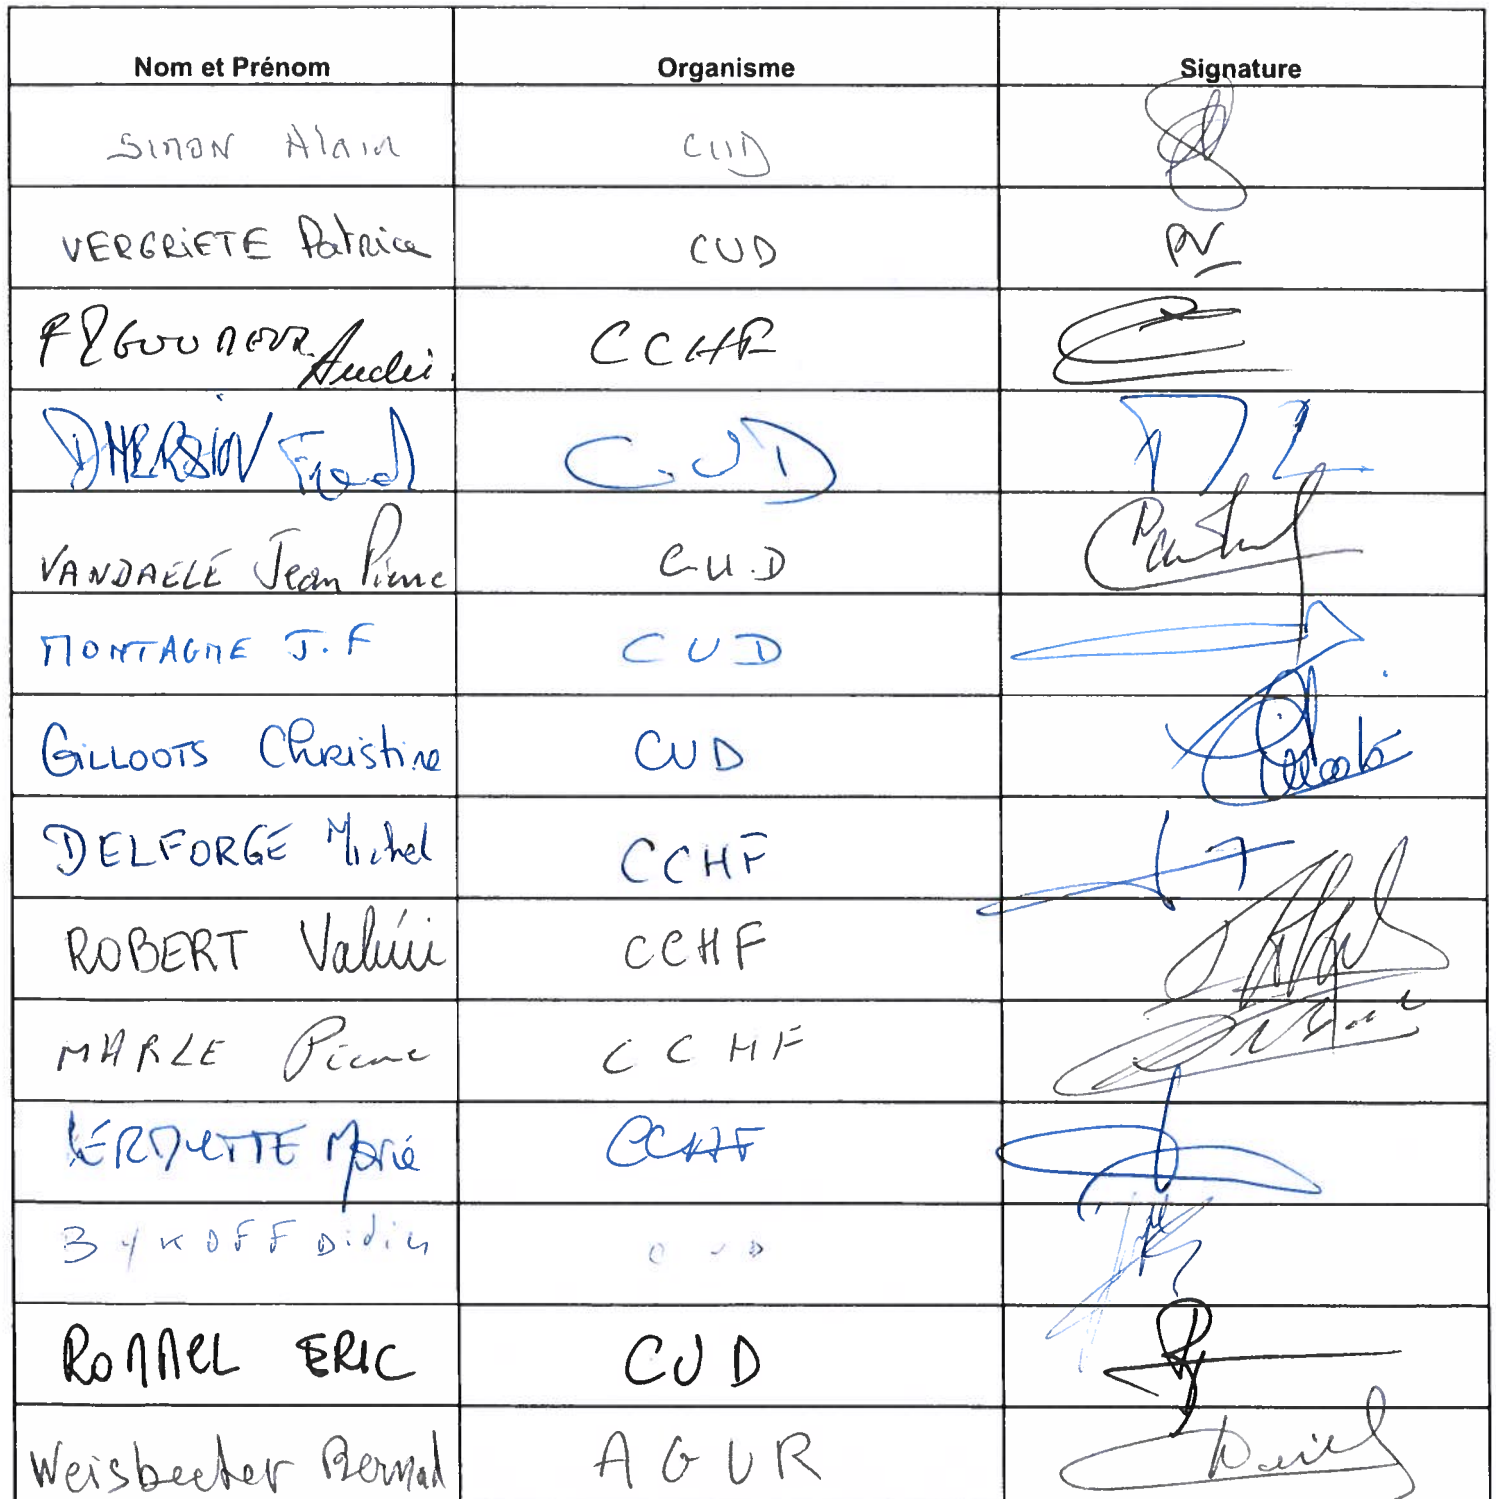 Nom et Prénom Organisme Signature
SIMON Alain CUD
VERGRIETE Patrice CUD PV
André CCHF
DHERSIN Fred C.U.D
VANDAELE Jean Pierre C.U.D
MONTAGNE J.F CUD
GILLOOTS Christine CUD
DELFORGE Michel CCHF
ROBERT Valérie CCHF
MARLE Pierre CCHF
VERDUETTE Marie CCHF
BYKOFF Didier CUD
ROMMEL ERIC CUD
Weisbecker Bernard AGUR